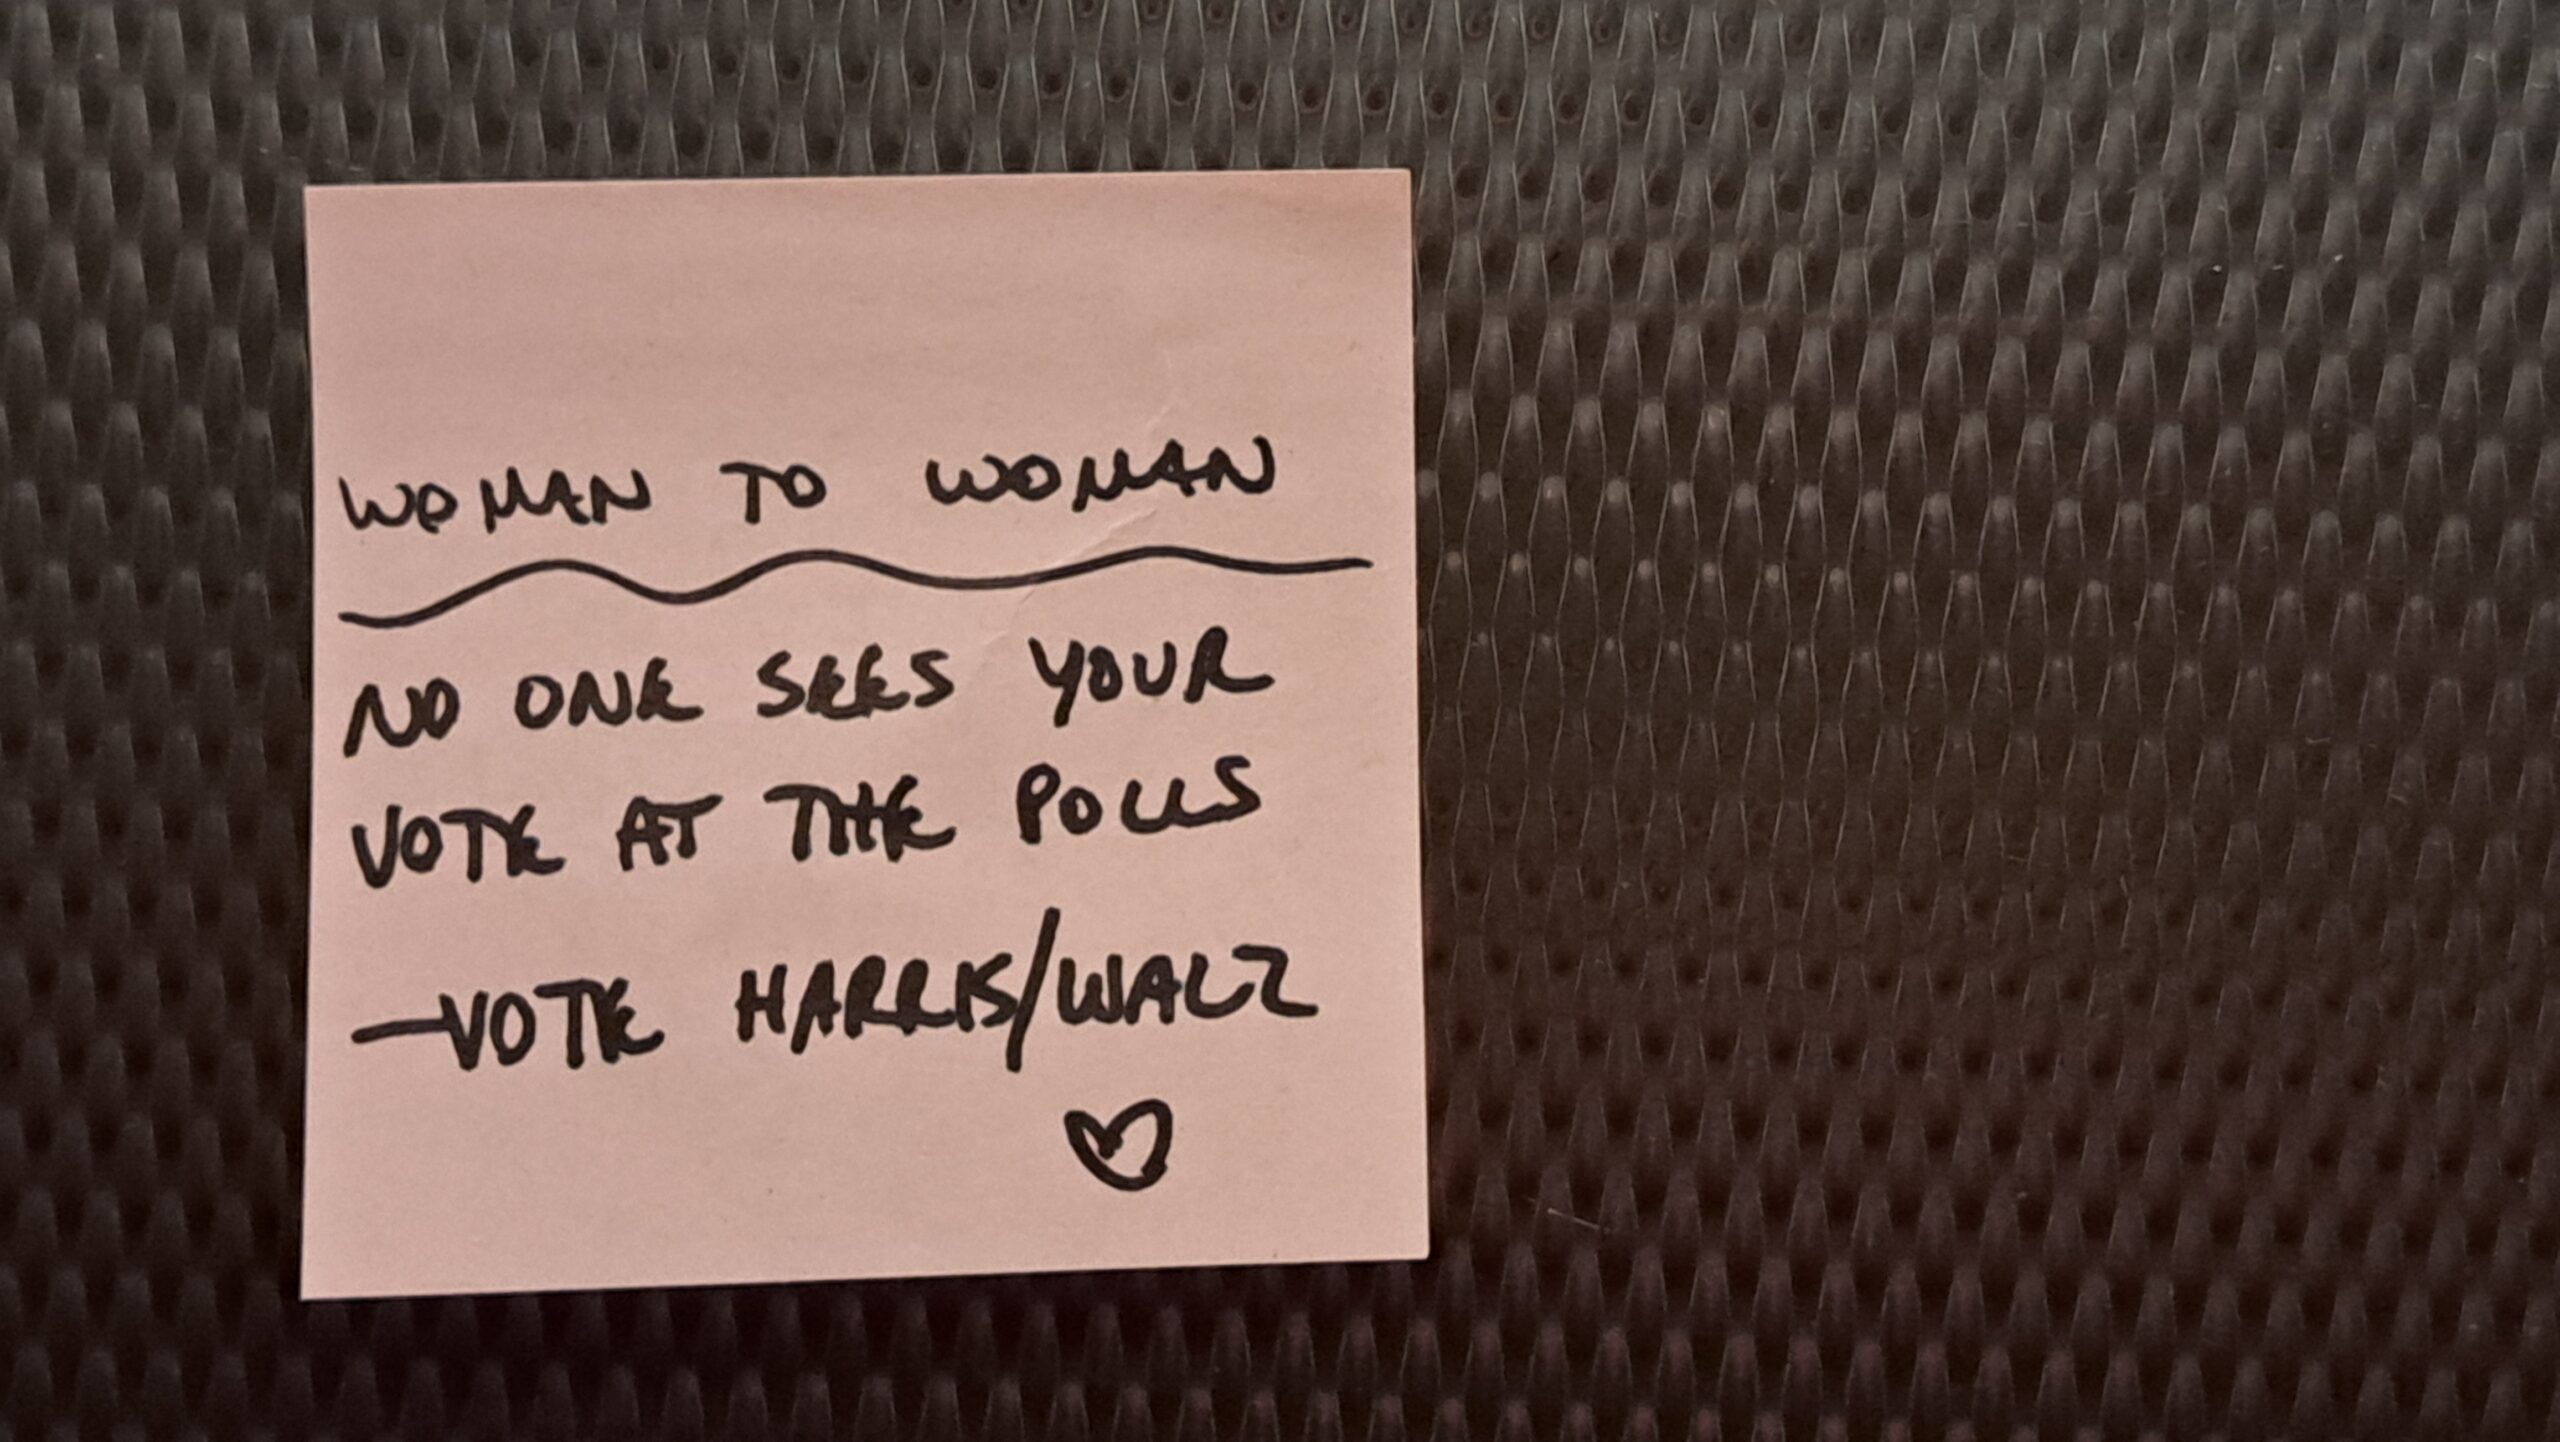 WOMAN TO WOMAN
NO ONE SEES YOUR
VOTE AT THE POLLS
—VOTE HARRIS/WALZ